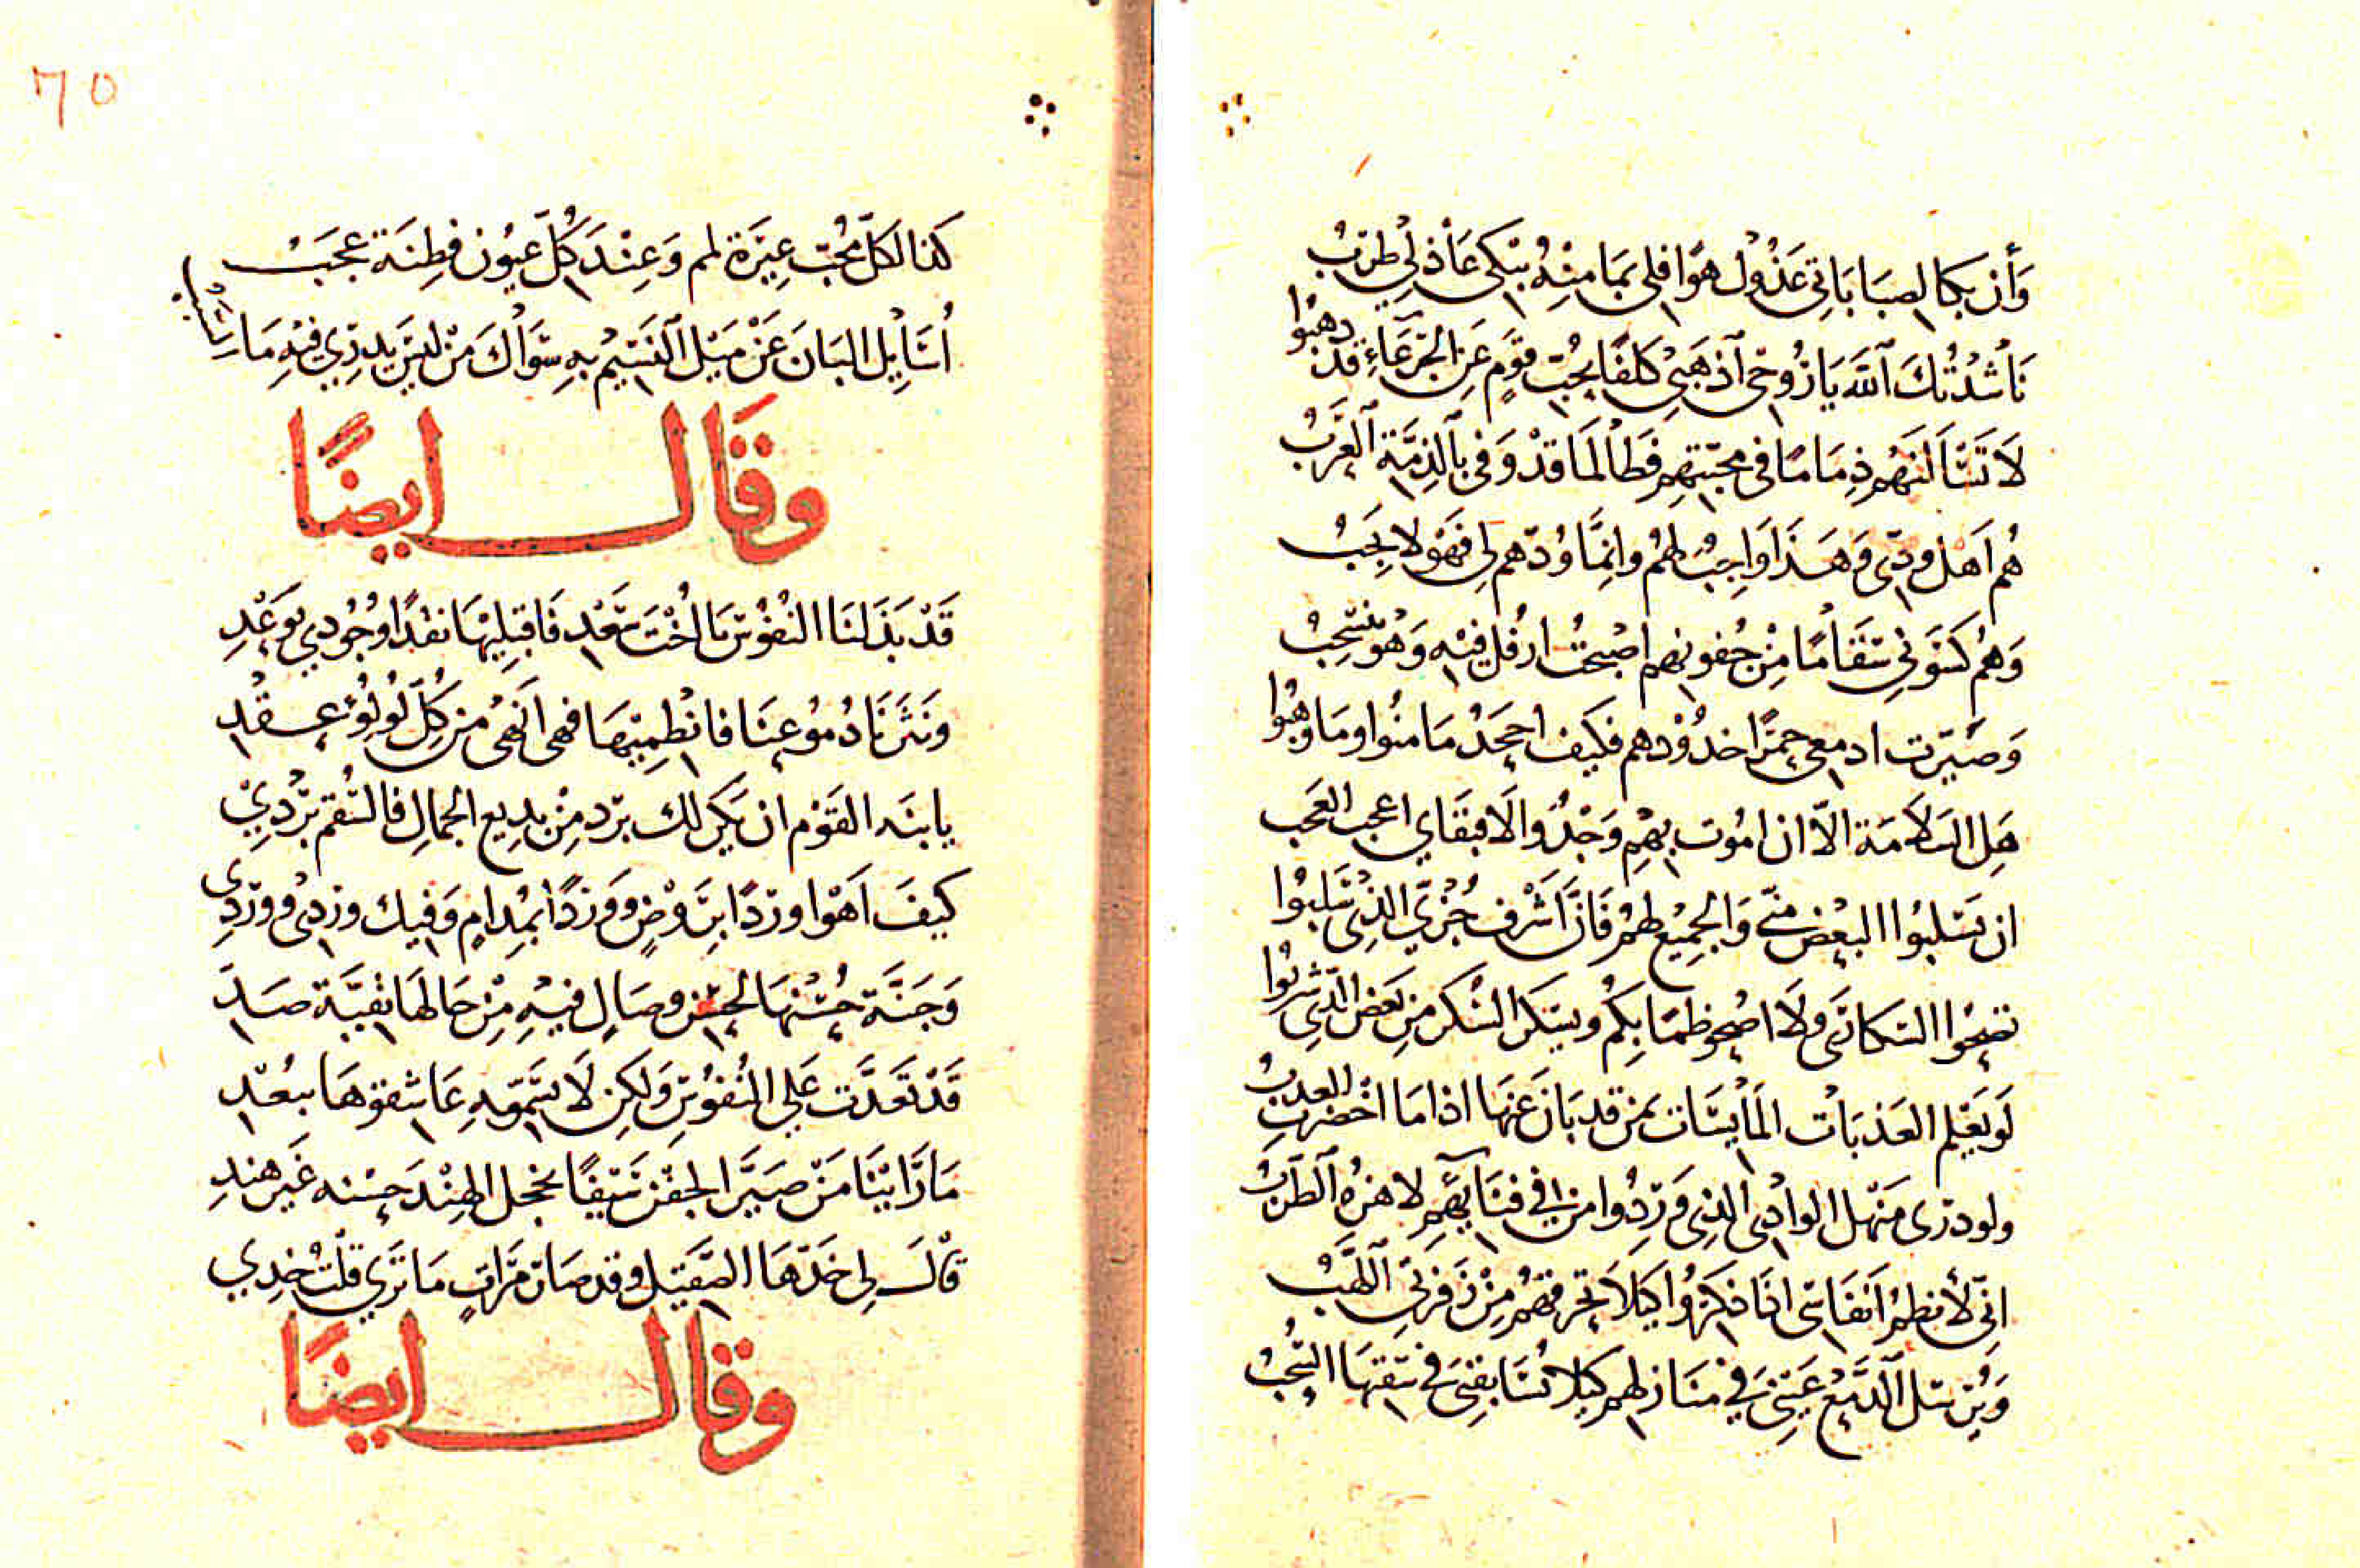 وَأن بكا لصبَابَاتي عَذُول هوًا فلي بمَا منْهُ يبْكى عَاْذلِي طرَبُ
نَاْشَدْتُكَ ٱللهَ يَا رُوحي ٱذهَبيْ كلفًا بحُبّ قومٍ عَن الجَرعَاءِ قدْ ذهبُوا
لاَ تَسْأَلنَهُم ذِمَامًا في محبّتهم فَطاْلمَا قدْ وَفى بٱلذِمَّة ٱلعَرَبُ
هُم اَهْل ودّي وَهَذَا وَاجِبٌ لهُم وانِمَّا وُدّهم لي فهَوْ لا يجَبُ
وَهُم كسَوْني سَقَاْمًا مِنْ جُفونهم اصْبحْتُ ارفُل فيْه وَهْو منسَحِبُ
وَصَيّرت ادمعي حمْرًا خدُوْدهم فكيف اجحَدُ مَا منُوا ومَا وَهبُوا
هَل السَلاَمَة الاّ ان امُوت بهِم وَجْدًوالا فبقَاي اعجب العَجب
ان يَسْلبُوا البعْض منّي وَالجميْع لهُم فَانَّ اَشْرف جُزءي الذِيْ سَلبُوا
تصْحُوا السكارَى ولاَ اصْحو ظمًا بكُم ويسكر السُكر من بَعض الذي شربُوا
لَو يَعْلم العَذبَاْت المَاْيسَات بمَن قد بَانَ عنهَا اذا مَا اخْضرت العذبُ
ولو درى منْهل الوادْي الذِي وَردُوا من في فنَايِهم لاهتزهُ ٱلطرَبُ
انّي لأُظمُ اَنفَاسي اذا ذكرُوا كيلاَ تحرقهُم مِنْ زفرتي ٱللهَبُ
وَيُرْسل ٱلدَمعُ عَيْني في مَنازلهم كيلا تُسَابقنِي في سَقيهَا السُحبُ
كذا لكلّ محُبّ غيْرَة لهم وَعِنْدَ كُلّ عيُون فِطِنَة عجَبُ
اُسَاْيِل البَانَ عَنْ مَيْل ٱلنَسيْم بهِ سُوَاْلَ مَنْ ليْسَ يدرِي فيْهِ مَا السَبَبُ
وقَال ايضًا
قَدْ بَذَلنَا النفُوْسَ يا اُخْتَ سَعْدِ فَاقبلِيْهَا نقدًا وجُودي بوَعْدِ
ونَثَرْنَا دُمُوعنَا فانْظِميْهَا فهي انَهىُ من كُلّ لُوْلُؤ عقْدِ
يا ابنَه القَوْم ان يَكن لك برْد مِنْ بديع الجمالِ فالسُقم بَرْدِيْ
كيفَ اَهْوا ورْدًا برَوْضٍ وَوَرْدًا بمُدامٍ وَفيك ورْدِيْ وورْدِي
وَجَنَّة حُسْنهَا لحُسْن وصَالٍ فيْهِ مِنْ حَالهَا بقيَّة صَدِّ
قَدْ تَعَدَّت عَلي النُفوْسِ وَلكِن لاَ يسَمّهِ عَاشقوهَا ببعُدِ
مَا رَاَيْنَا مَنْ صَيَّر الجفْن سَيْفًا يخجل الهِنْدَ حسْنه غَير هندِ
قاْلَ لي خَدّهَا الصَّقيْل وقد صَان مَرَاتٍ مَا تَري قلْتُ خدِي
وقال ايضًا